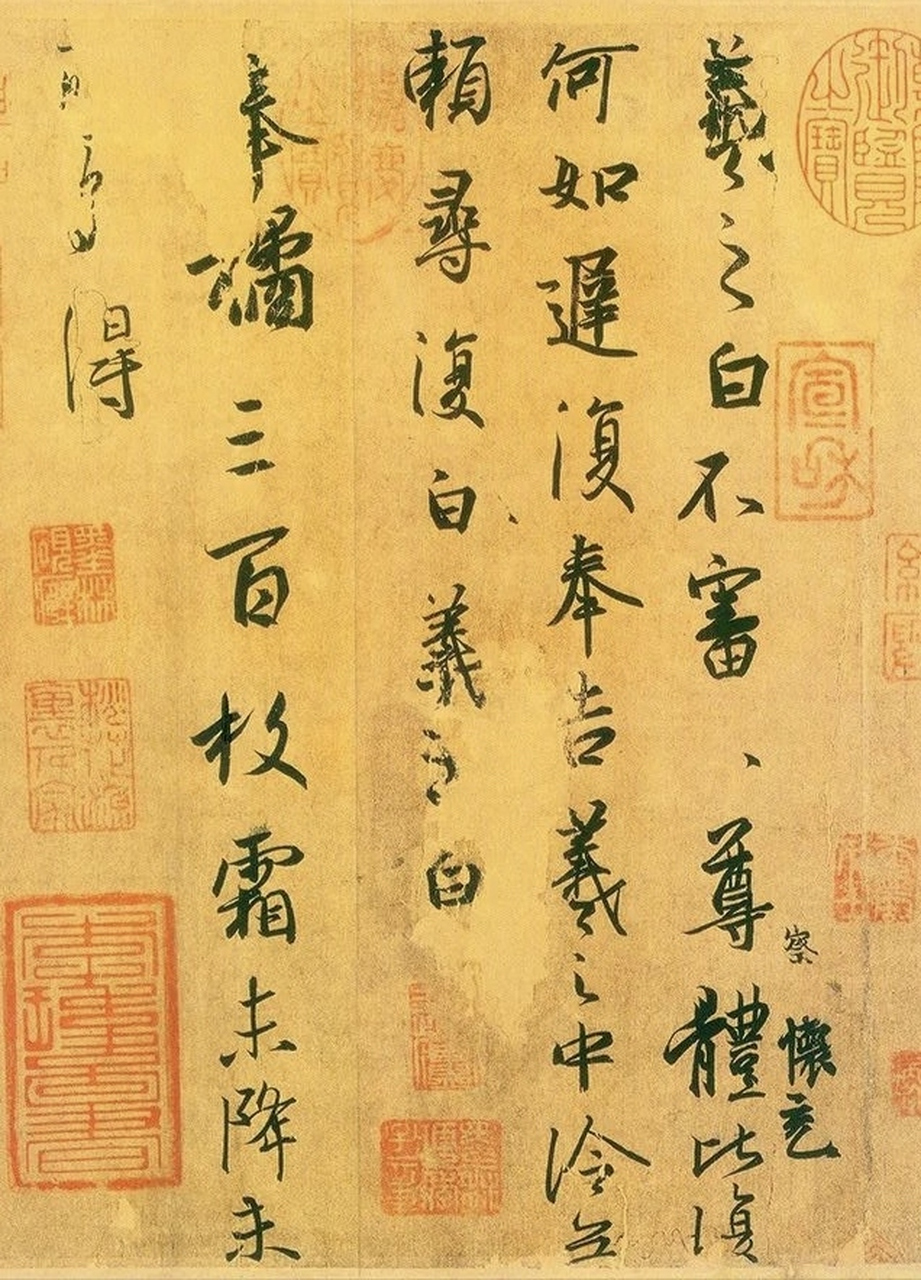 羲之白不審尊體比復
察
懷充
何如遲復奉告羲之中冷無
賴尋復白羲之白
奉橘三百枚霜未降未
可多得
宣和